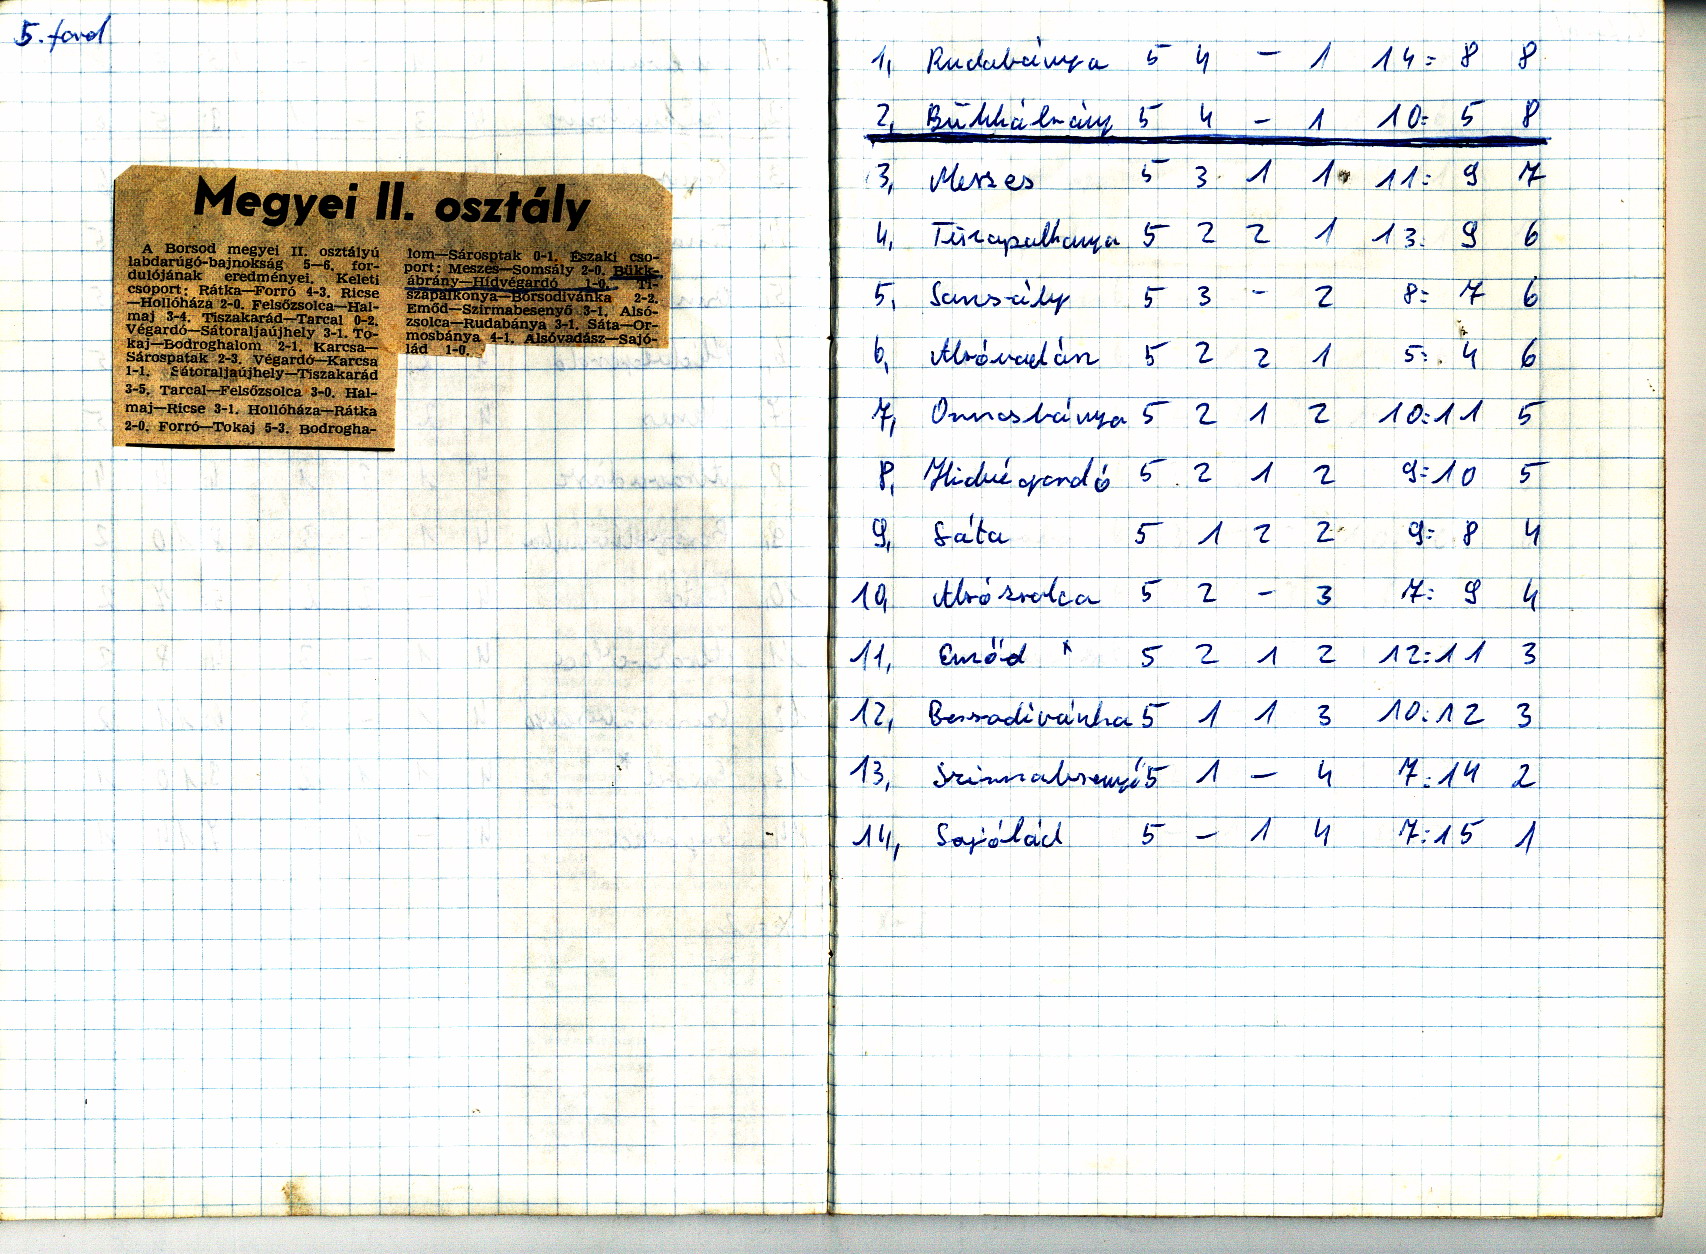 5. ford
Megyei II. osztály
A Borsod megyei II. osztályú
labdarúgó-bajnokság 5—6. for-
dulójának eredményei. Keleti
csoport: Rátka—Forró 4-3. Ricse
—Hollóháza 2-0. Felsőzsolca—Hal-
maj 3-4. Tiszakarád—Tarcal 0-2.
Végardó—Sátoraljaújhely 3-1. To-
kaj—Bodroghalom 2-1. Karcsa—
Sárospatak 2-3. Végardó—Karcsa
1-1. Sátoraljaújhely—Tiszakarád
3-5. Tarcal—Felsőzsolca 3-0. Hal-
maj—Ricse 3-1. Hollóháza—Rátka
2-0. Forró—Tokaj 5-3. Bodrogha-
lom—Sárosptak 0-1. Északi cso-
port: Meszes—Somsály 2-0. Bükk-
ábrány—Hídvégardó 1-0. Ti-
szapalkonya—Borsodivánka 2-2.
Emőd—Szirmabesenyő 3-1. Alsó-
zsolca—Rudabánya 3-1. Sáta—Or-
mosbánya 4-1. Alsóvadász—Sajó-
lád 1-0.
1, Rudabánya 5 4 - 1 14=8 8
2, Bükkábrány 5 4 - 1 10=5 8
3, Meszes 5 3 1 1 11=9 7
4, Tiszapalkonya 5 2 2 1 13:9 6
5, Somsály 5 3 - 2 8=7 6
6, Alsóvadász 5 2 2 1 5=4 6
7, Ormosbánya 5 2 1 2 10=11 5
8, Hidvégardó 5 2 1 2 9=10 5
9, Sáta 5 1 2 2 9=8 4
10, Alsózsolca 5 2 - 3 7=9 4
11, Emőd x 5 2 1 2 12=11 3
12, Borsodivánka 5 1 1 3 10:12 3
13, Szirmabesenyő 5 1 - 4 7:14 2
14, Sajólád 5 - 1 4 7:15 1